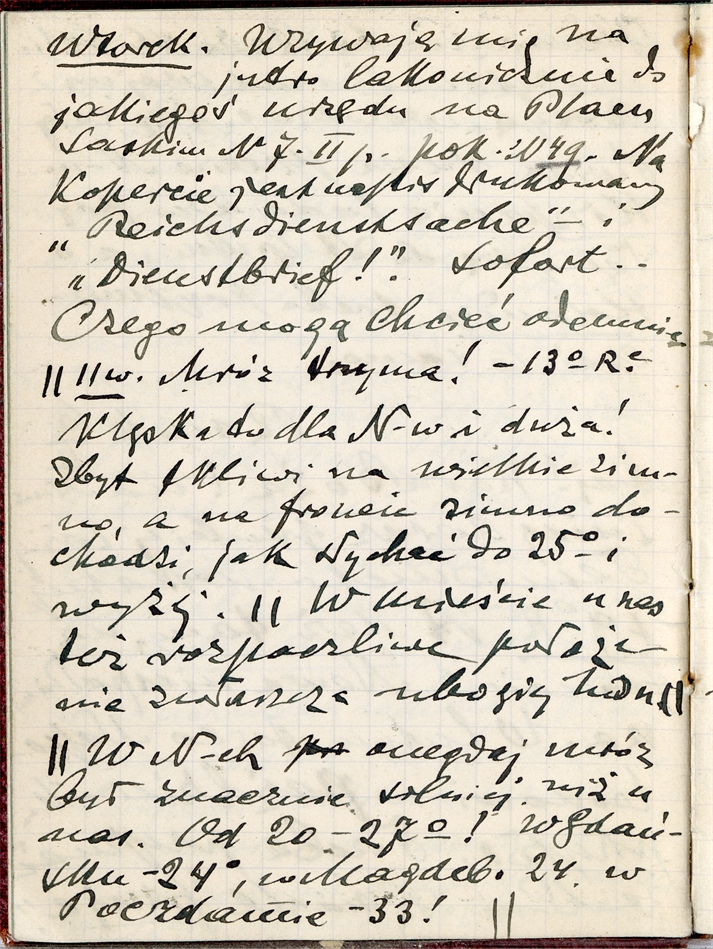 Wtorek. Wzywają mię na
jutro lakonicznie do
jakiegoś urzędu na Placu
Saskim N 7. II p. pok. N 49. Na
Kopercie jest napis drukowany
„Reichsdienstsache" – i
„Dienstbrief!". Sofort..
Czego mogą chcieć odemnie
|| 11 w. Mróz trzyma! – 13º R.
Klęska to dla N-w i duża!
Zbyt tkliwi na wielkie zim-
no, a na froncie zimno do-
chodzi, jak słychać do 25º i
wyżej. || W mieście u nas
też rozpaczliwe położe-
nie zwłaszcza ubogiej ludn. ||
|| W N-ch onegdaj mróz
był znacznie silniej. niż u
nas. Od 20 – 27º! W Gdań-
sku – 24º, w Magdeb. 24. w
Poczdamie – 33! ||